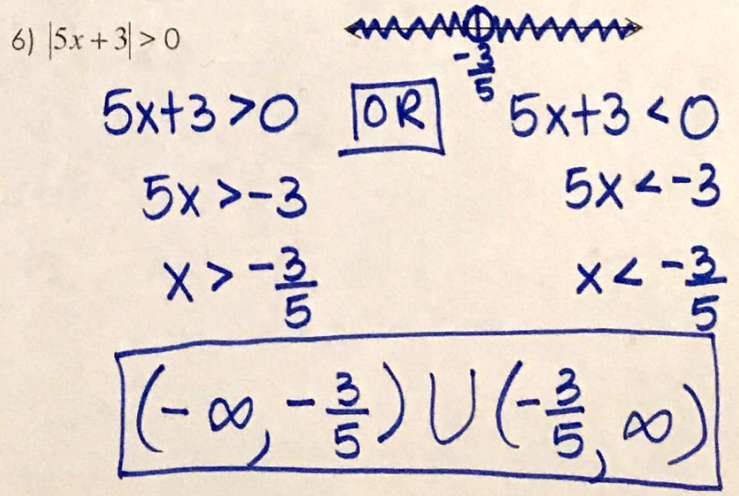 6) |5x + 3| > 0
-3/5
5x+3 >0 OR 5x+3 <0
5x >-3 5x <-3
x > -3/5 x < -3/5
(-∞, -3/5) ∪ (-3/5, ∞)